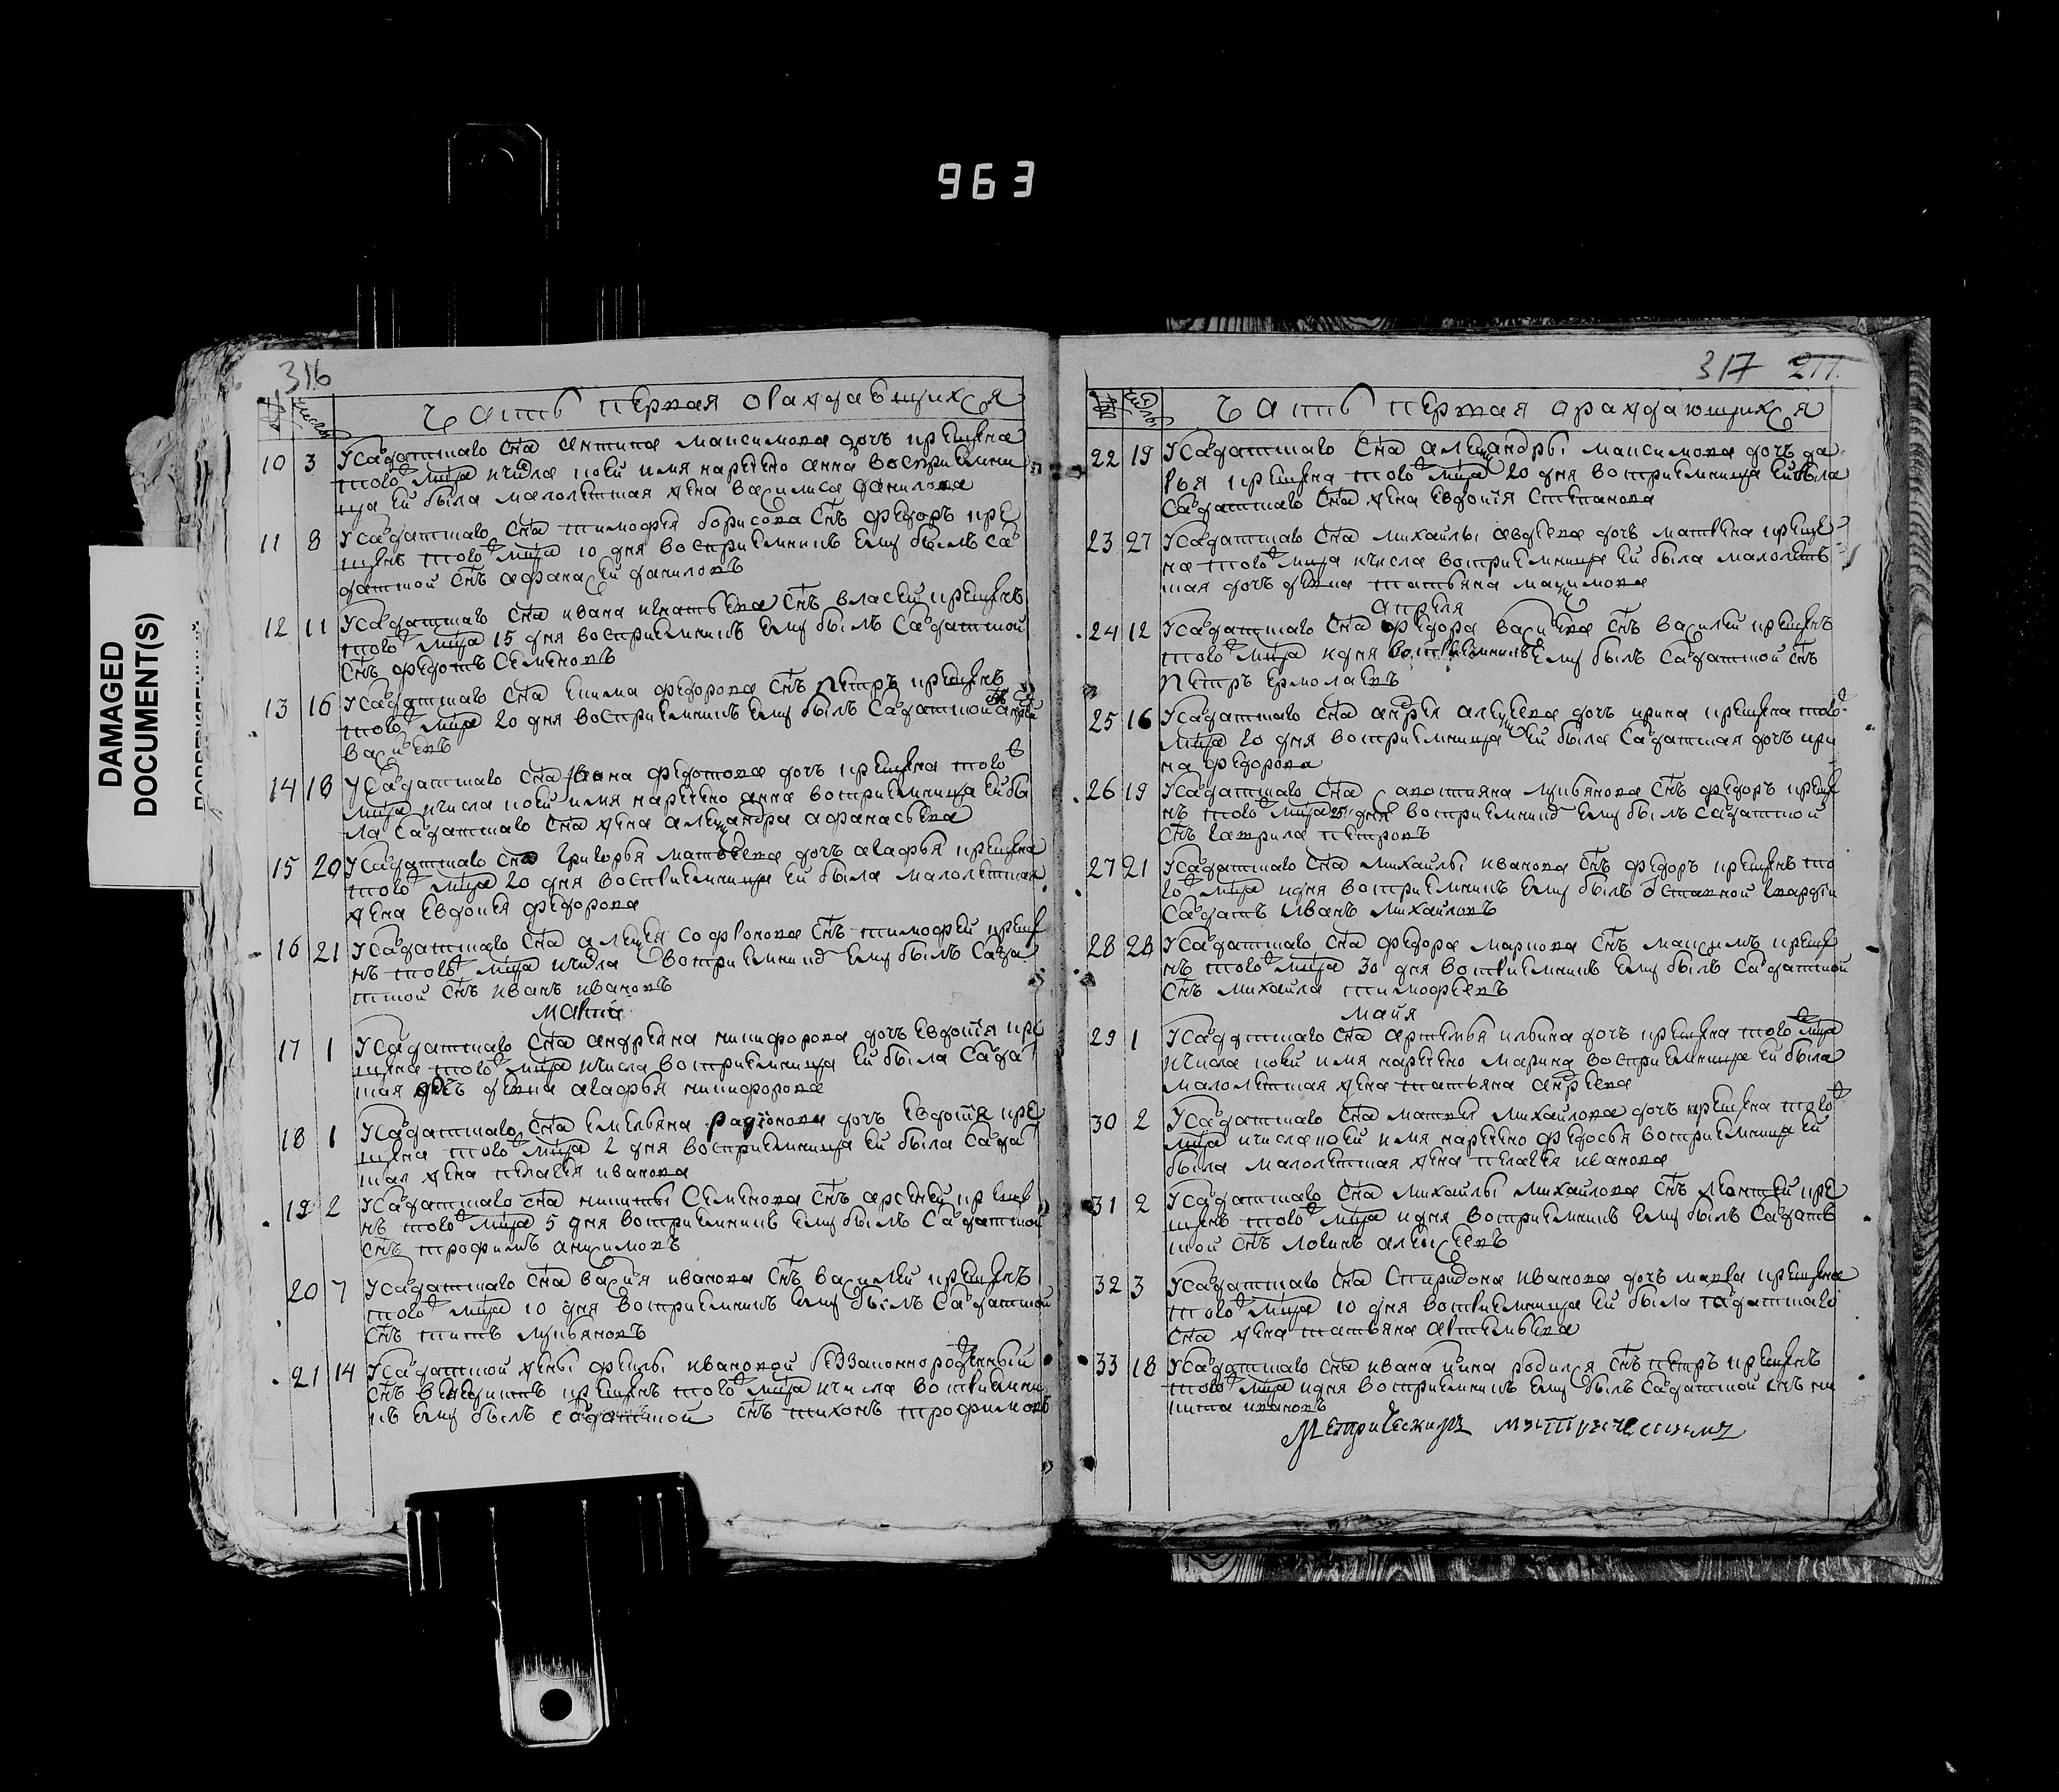 963
DAMAGED
DOCUMENT(S)
316
Часть первая ораждающихся
10 3 У салдатцкаго сна антипа максимова дочь крещена
того мца и числа коей имя наречено анна восприемни
ца ей была малолетная жена василиса данилова
11 8 У салдатцкаго сна тимофея борисова снъ федоръ кре
щенъ того мца 10 дня восприемникъ ему былъ сал
датцкой снъ афанасей даниловъ
12 11 У салдатцкаго сна ивана игнатьева снъ власей крещенъ
того мца 15 дня восприемникъ ему былъ салдатцкой
снъ федотъ семеновъ
13 16 У салдатцкаго сна екима федорова снъ петръ крещенъ
того мца 20 дня восприемникъ ему былъ салдатцкой снъ андрей
васильевъ
14 18 У салдатцкаго сна ивана федотова дочь крещена того
мца и числа коей имя наречено анна восприемница ей бы
ла салдатцкаго сна жена александра афанасьева
15 20 У салдатцкаго сна григорья матвеева дочь агафья крещена
того мца 20 дня восприемница ей была малолетная
жена евдокея федорова
16 21 У салдатцкаго сна алексея софронова снъ тимофей креще
нъ того мца и числа восприемникъ ему былъ салда
тцкой снъ иванъ ивановъ
марта
17 1 У салдатцкаго сна андреяна никифорова дочь евдокѣя кре
щена того мца и числа восприемница ей была салда
цкая дочь девка агафья никифорова
18 1 У салдатцкаго сна емельяна радионова дочь евдокѣя кре
щена того мца 2 дня восприемница ей была салда
цкая жена пелагея иванова
19 2 У салдатцкаго сна никиты семенова снъ арсеней креще
нъ того мца 5 дня восприемникъ ему былъ салдатцкой
снъ трофимъ анисимовъ
20 7 У салдатцкаго сна василья иванова снъ василей крещенъ
того мца 10 дня восприемникъ ему былъ салдатцкой
снъ титъ лукьяновъ
21 14 У салдатцкой жены феклы ивановой беззаконнорожденный
снъ венедиктъ крещенъ того мца и числа восприемни
къ ему былъ салдатцкой снъ тихонъ трофимовъ
317 211
Часть первая ораждающихся
22 19 У салдатцкаго сна александры максимова дочь да
рья крещена того мца 20 дня восприемница ей была
салдатцкаго сна жена евдокѣя степанова
23 27 У салдатцкаго сна михайлы авдеева дочь матрена креще
на того мца и числа восприемница ей была малолет
ная дочь девка татьяна максимова
апреля
24 12 У салдатцкаго сна федора васильева снъ василей крещенъ
того мца и дня восприемникъ ему былъ салдатцкой снъ
петръ ермолаевъ
25 16 У салдатцкаго сна андрея алексеева дочь ирина крещена того
мца 20 дня восприемница ей была салдатцкая дочь ири
на федорова
26 19 У салдатцкаго сна савостьяна лукьянова снъ федоръ креще
нъ того мца 25 дня восприемникъ ему былъ салдатцкой
снъ гаврила петровъ
27 21 У салдатцкаго сна михайлы иванова снъ федоръ крещенъ то
го мца и дня восприемникъ ему былъ оставной гвардіи
салдатъ иванъ михайловъ
28 28 У салдатцкаго сна федора маркова снъ максимъ креще
нъ того мца 30 дня восприемникъ ему былъ салдатцкой
снъ михайла тимофеевъ
майя
29 1 У салдатцкаго сна артемья ильина дочь крещена того мца
и числа коей имя наречено марина восприемница ей была
малолетная жена татьяна андреева
30 2 У салдатцкаго сна матвея михайлова дочь крещена того
мца и числа коей имя наречено федосья восприемница ей
была малолетная жена пелагея иванова
31 2 У салдатцкаго сна михайлы михайлова снъ леонтей кре
щенъ того мца и дня восприемникъ ему былъ салдат
цкой снъ логинъ алексеевъ
32 3 У салдатцкаго сна спиридона иванова дочь мавра крещена
того мца 10 дня восприемница ей была салдатцкаго
сна жена татьяна артемьева
33 18 У салдатцкаго сна ивана родился снъ петръ крещенъ
того мца и дня восприемникъ ему былъ салдатцкой снъ ни
кита ивановъ
Метрическимъ метрическимъ